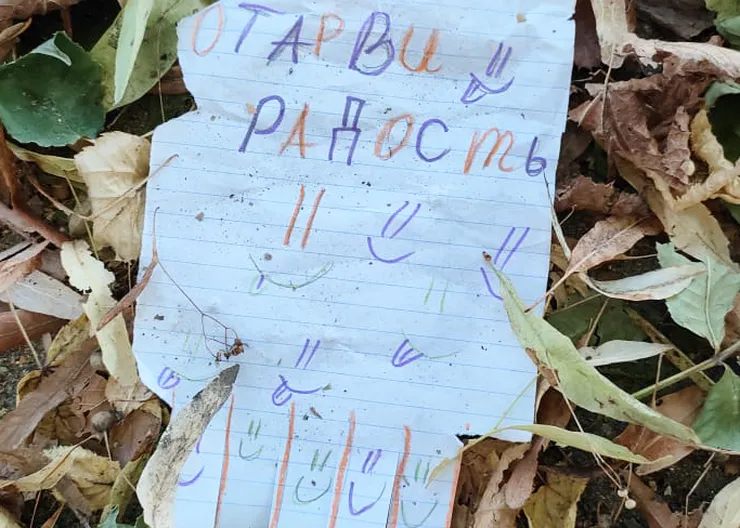 ОТАРВи
РАДОСТЬ